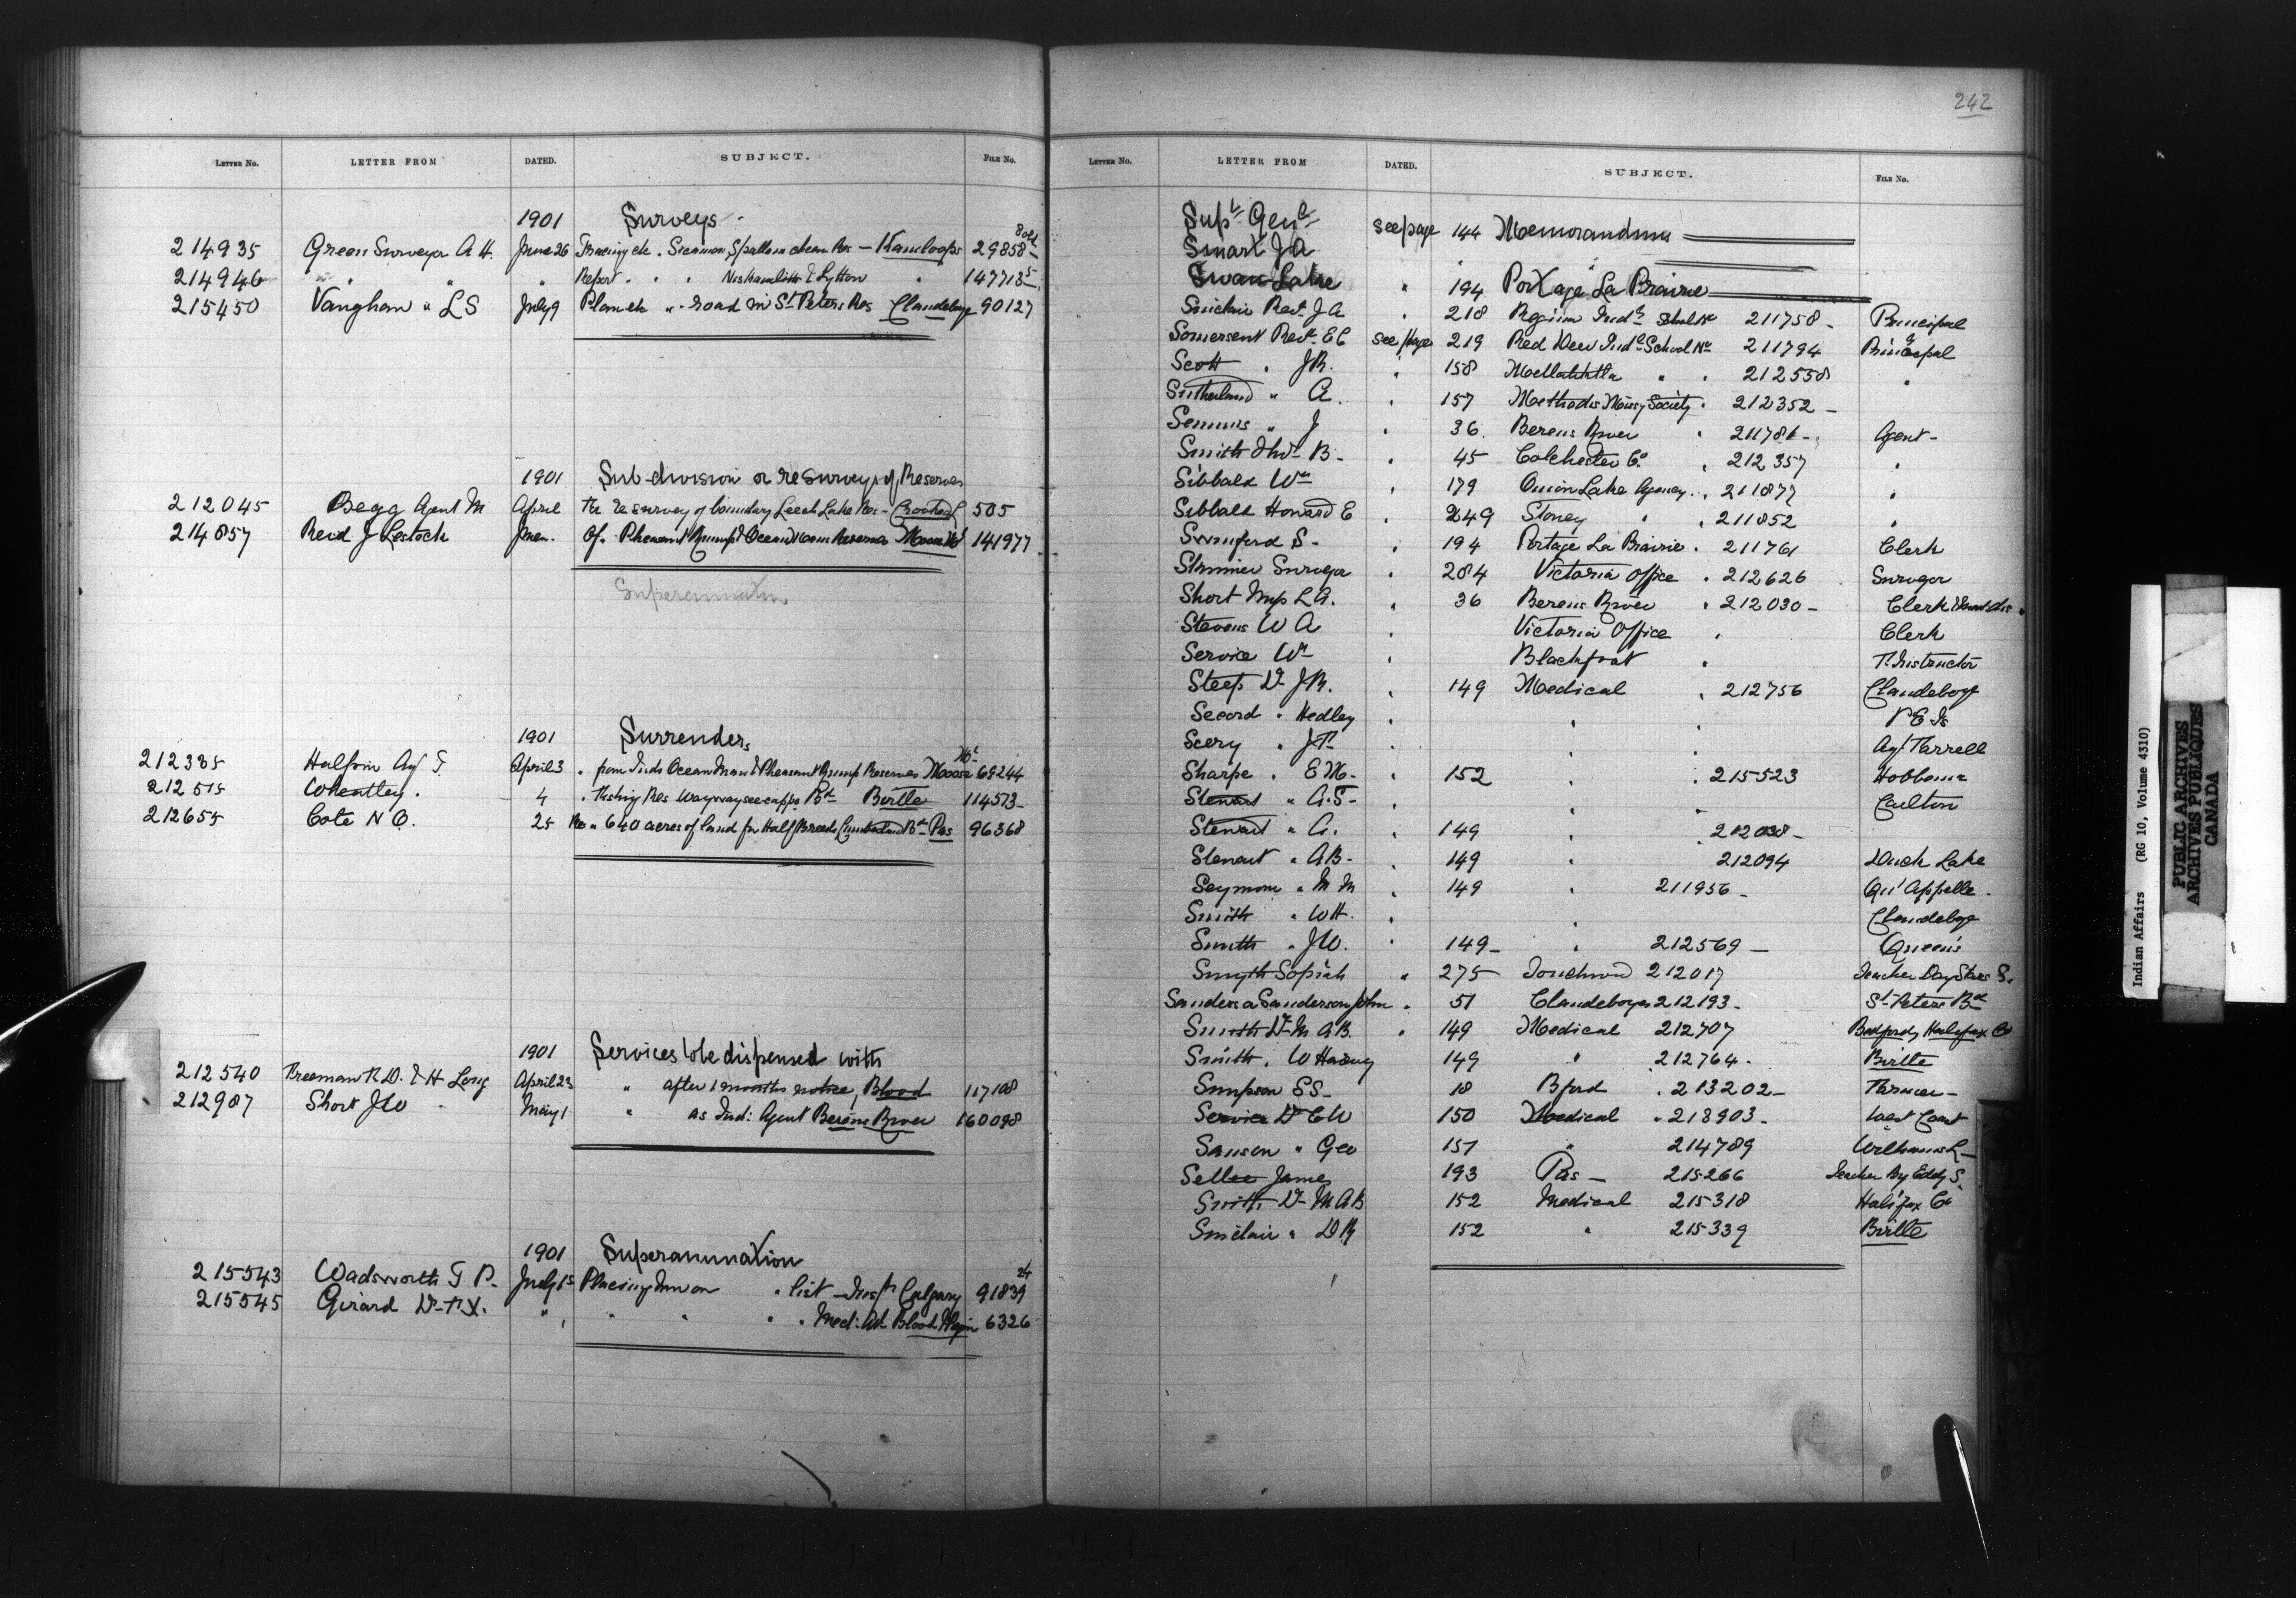 LETTER NO. LETTER FROM DATED. SUBJECT. FILE NO.
1901 Surveys
214935 Green Surveyor A H. June 26 Tracing etc. Sicamon, Spallumcheen Res - Kamloops 29858-
214946 " " " Report " " Lytton " 147713 5
215450 Vaughan " L S July 9 Plan etc " road in St Peters Res Clandeboye 90127
1901 Sub-division or resurveys of Reserves
212045 Begg Agent M April Re resurvey of boundary Leech Lake Res - Crooked L 505
214857 Reid J Lestock June Of Pheasant Rump & Ocean Man Reserves Moose Mt 141977
Superannuation
1901 Surrenders
212335 Halpin Ag T. April 3 " from Inds Ocean Man & Pheasant Rump Reserves Moose Mt 69244
212515 Wheatley " 4 " Fishing Res Waywayseecappo Bd Birtle 114573-
212655 Cote N O. 25 Re " 640 acres of land for Half Breeds Cumberland Bd Pas 96368
1901 Services to be dispensed with
212540 Freeman F. D. & H Long April 23 " after 1 months notice, Blood 117108
212987 Short J W May 1 " as Ind: Agent Berens River 160098
1901 Superannuation
215543 Wadsworth T P. July 15 Placing him on " list - Insp Calgary 91839 24
215545 Girard Dr F X. " " " " " Med: Att Blood & Peigan 6326
242
LETTER NO. LETTER FROM DATED. SUBJECT. FILE NO.
Supt Genl see page 144 Memorandums
Smart J A " "
Swan Lake " 194 Portage La Prairie
Sinclair Revd J A " 218 Regina Indl School Re 211758 - Principal
Somerset Revd E C see page 219 Red Deer Indl School Re 211794 Principal
Scott " J R. " 158 Metlakatla " " 212558 "
Sutherland " A. " 157 Methodis Missy Society " 212352 -
Semmens " J " 36. Berens River " 211781 - Agent -
Smith B - " 45 Colchester Co. " 212357 "
Sibbald Wm " 179 Onion Lake Agency " 211877 "
Sibbald Howard E " 249 Stoney " " 211852 "
Swinford S - " 194 Portage La Prairie " 211761 Clerk
Skinner Surveyor " 284 Victoria Office " 212626 Surveyor
Short L A. " 36 Berens River " 212030 - Clerk
Stevens W A " Victoria Office " Clerk
Service Wm " Blackfoot " F. Instructor
Steep Dr J R. " 149 Medical " 212756 Clandeboye
Secord " Hedley " " " P E Is
Scery " J F " " " Ag Farrell
Sharpe " E M - " 152 " " 215523 Hobbema
Stewart " A. S - " " Carlton
Stewart " A. " 149 " " 212038 -
Stewart " A B - " 149 " 212094 Duck Lake
Seymour " M M " 149 " 211956 - Qu'Appelle.
Smith " W H. " " Clandeboye
Smith " J W. " 149 - " 212569 - Queen's
Smyth Sopiah " 275 Touchwood 212017 Teacher Day Stars S.
Sanders or Sanderson John " 51 Clandeboye 212193 - St Peters Bd
Smith Dr M A B. " 149 Medical 212707 Bedford, Halifax Co
Smith. W Harvey 149 " 212764. Birtle
Simpson S S - 18 Bford " 213202 - Farmer -
Service Dr C W 150 Medical " 213903. West Coast
Sanson " Geo 151 " 214789 Williams L -
Sellee James 193 Pas - 215266 Teacher By Eddy S.
Smith Dr M A B 152 Medical 215318 Halifax Co
Sinclair " D R 152 " 215339 Birtle
Indian Affairs (RG 10, Volume 4310)
PUBLIC ARCHIVES
ARCHIVES PUBLIQUES
CANADA